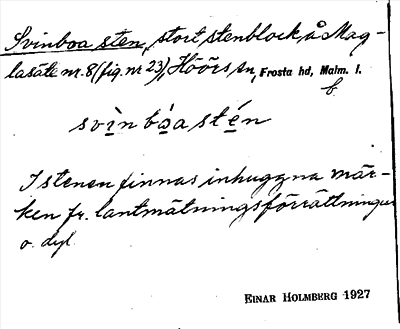 Svinboa sten, stort stenblock å Mag-
lasäte nr. 8 (fig. nr 23), Höörs sn, Frosta hd, Malm. l.
b.
svi̲nbo̲astén
I stenen finnas inhuggna mär-
ken fr. lantmätningsförrättningar
o. dyl.
EINAR HOLMBERG 1927